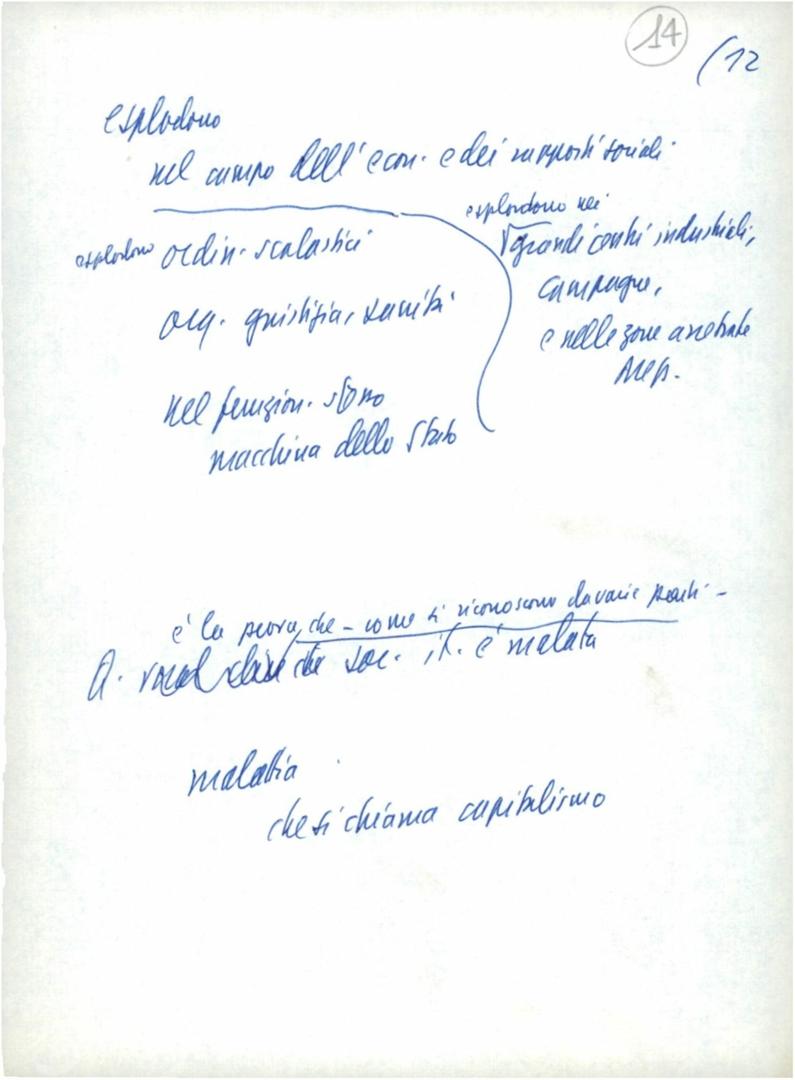 14
(12
esplodono
nel campo dell'econ. e dei rapporti sociali
esplodono ordin. scolastici
org. giustizia, sanità
nel funzion. stesso
macchina dello Stato
esplodono nei
grandi centri industriali,
campagne,
e nelle zone arretrate
Mer.
è la prova, che – come si riconoscono da varie parti –
che soc. it. è malata
malattia
che si chiama capitalismo